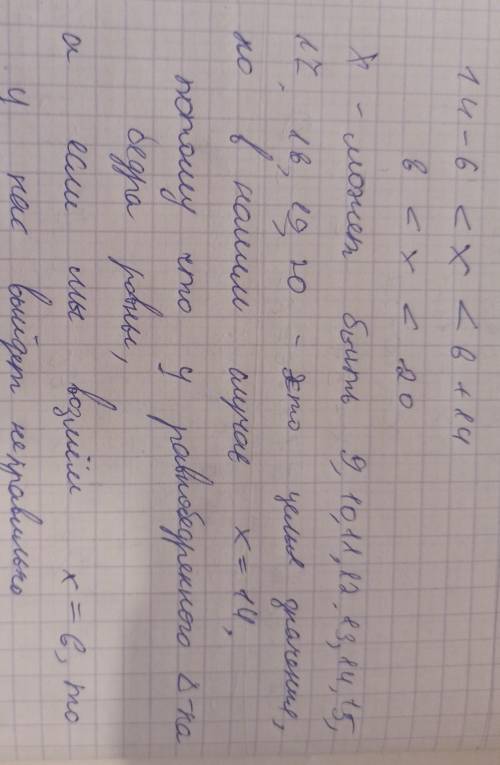 14-6 < x < 6+14
8 < x < 20
x - может быть 9, 10, 11, 12, 13, 14, 15,
17, 18, 19, 20 - это целые значения,
но в нашим случае x = 14,
потому что у равнобедренного Δ-ка
бедра равны,
а если мы возмём x = 6, то
у нас выйдет неправильно